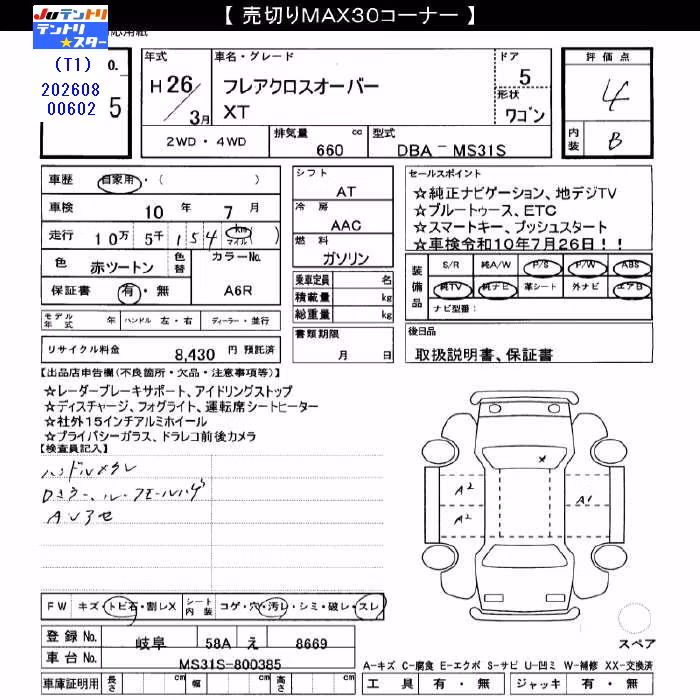 【 売切りMAX30コーナー 】
JUテントリ
テントリ
★スター
応用紙
(T1)
O.
202608
00602
5
年式
H26/3月
車名・グレード
フレアクロスオーバー
XT
ドア
5
形状
ワゴン
評価点
4
内装
B
2WD・4WD
排気量
cc
660
型式
DBA－MS31S
車歴
自家用・(　　)
車検
10 年 7 月
走行
10万 5千 154 km マイル ( )
色
赤ツートン
色替
カラーNo.
A6R
保証書
有・無
モデル年式
年
ハンドル
左・右
ディーラー・並行
リサイクル料金
8,430 円 預託済
シフト
AT
冷房
AAC
燃料
ガソリン
乗車定員
名
積載量
kg
総重量
kg
書類期限
月 日
セールスポイント
☆純正ナビゲーション、地デジTV
☆ブルートゥース、ETC
☆スマートキー、プッシュスタート
☆車検令和10年7月26日！！
装備品
S/R 純A/W P/S P/W ABS
純TV 純ナビ 革シート 外ナビ エアB
ナビ型番：
後日品
取扱説明書、保証書
【出品店申告欄(不良箇所・欠品・注意事項等)】
☆レーダーブレーキサポート、アイドリングストップ
☆ディスチャージ、フォグライト、運転席シートヒーター
☆社外15インチアルミホイール
☆プライバシーガラス、ドラレコ前後カメラ
【検査員記入】
ハンドルスレ
X
A2
A2
A1
FW
キズ・トビ石・割レX
シート内装
コゲ・穴・汚レ・シミ・破レ・スレ
登録No.
岐阜 58A え 8669
車台No.
MS31S-800385
車庫証明用
長さ cm 幅 cm 高さ cm
スペア
A-キズ C-腐食 E-エクボ S-サビ U-凹ミ W-補修 XX-交換済
工具 有・無 ジャッキ 有・無